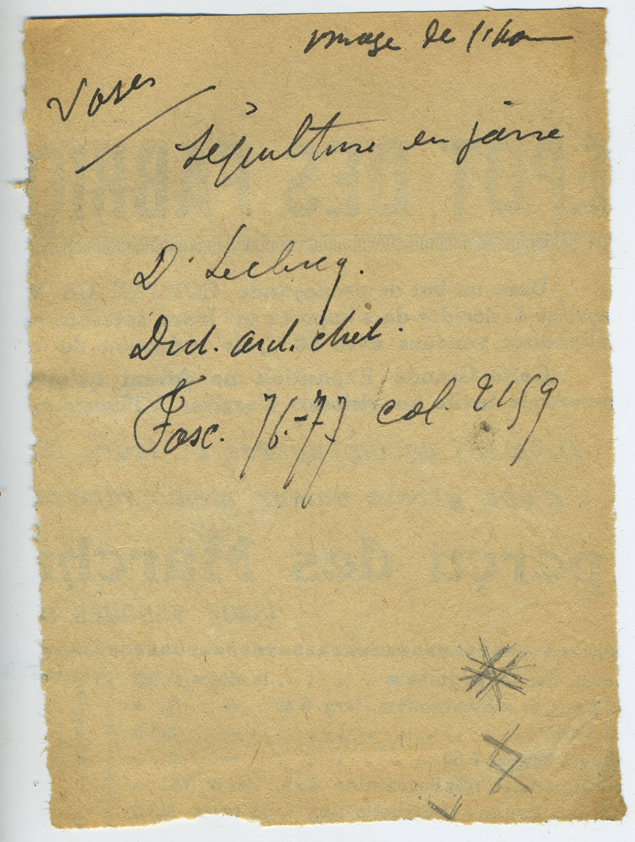 image de
Vases
Sépulture en jarre
D. Leclercq.
Dict. arch. chrét.
Fasc. 76-77 col. 2159